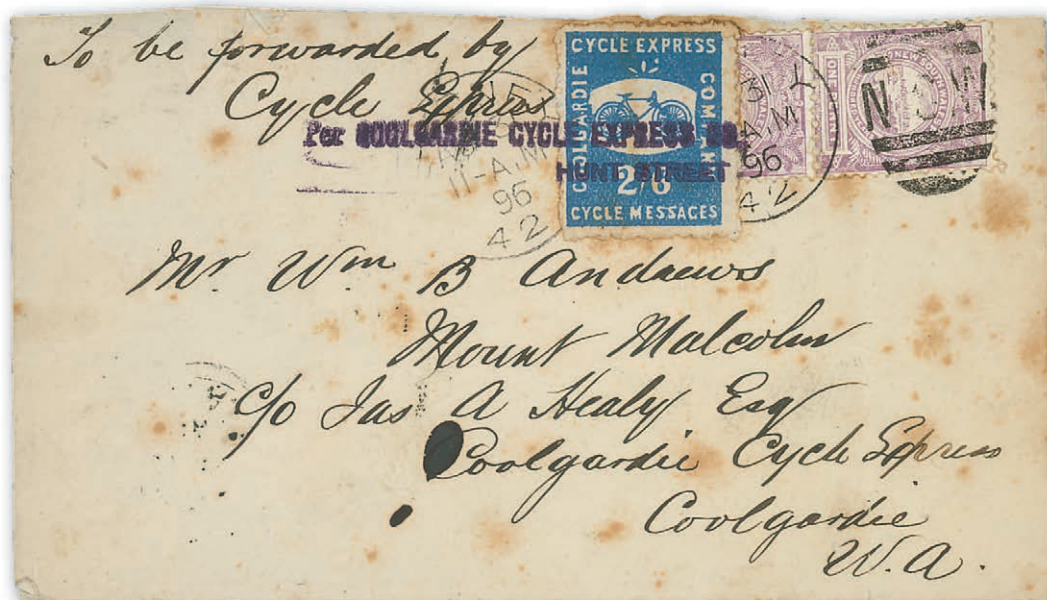 To be forwarded by
Cycle Express
Per COOLGARDIE CYCLE EXPRESS CO.
HUNT STREET
CYCLE EXPRESS
COOLGARDIE
COMPANY
2/6
CYCLE MESSAGES
11-A.M
96
42
A.M
96
42
NEW SOUTH WALES
ONE
N.S.W
Mr. Wm B Andrews
Mount Malcolm
c/o Jas A Healy Esq
Coolgardie Cycle Express
Coolgardie
W.A.